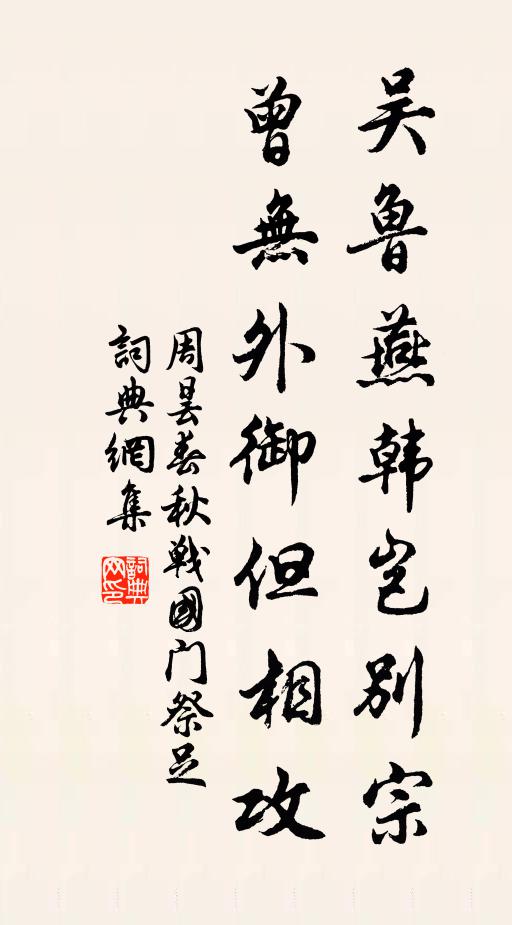 吴鲁燕韩岂别宗
曾無外御但相攻
周昙春秋戰國门祭足
詞典網集
詞典
网印